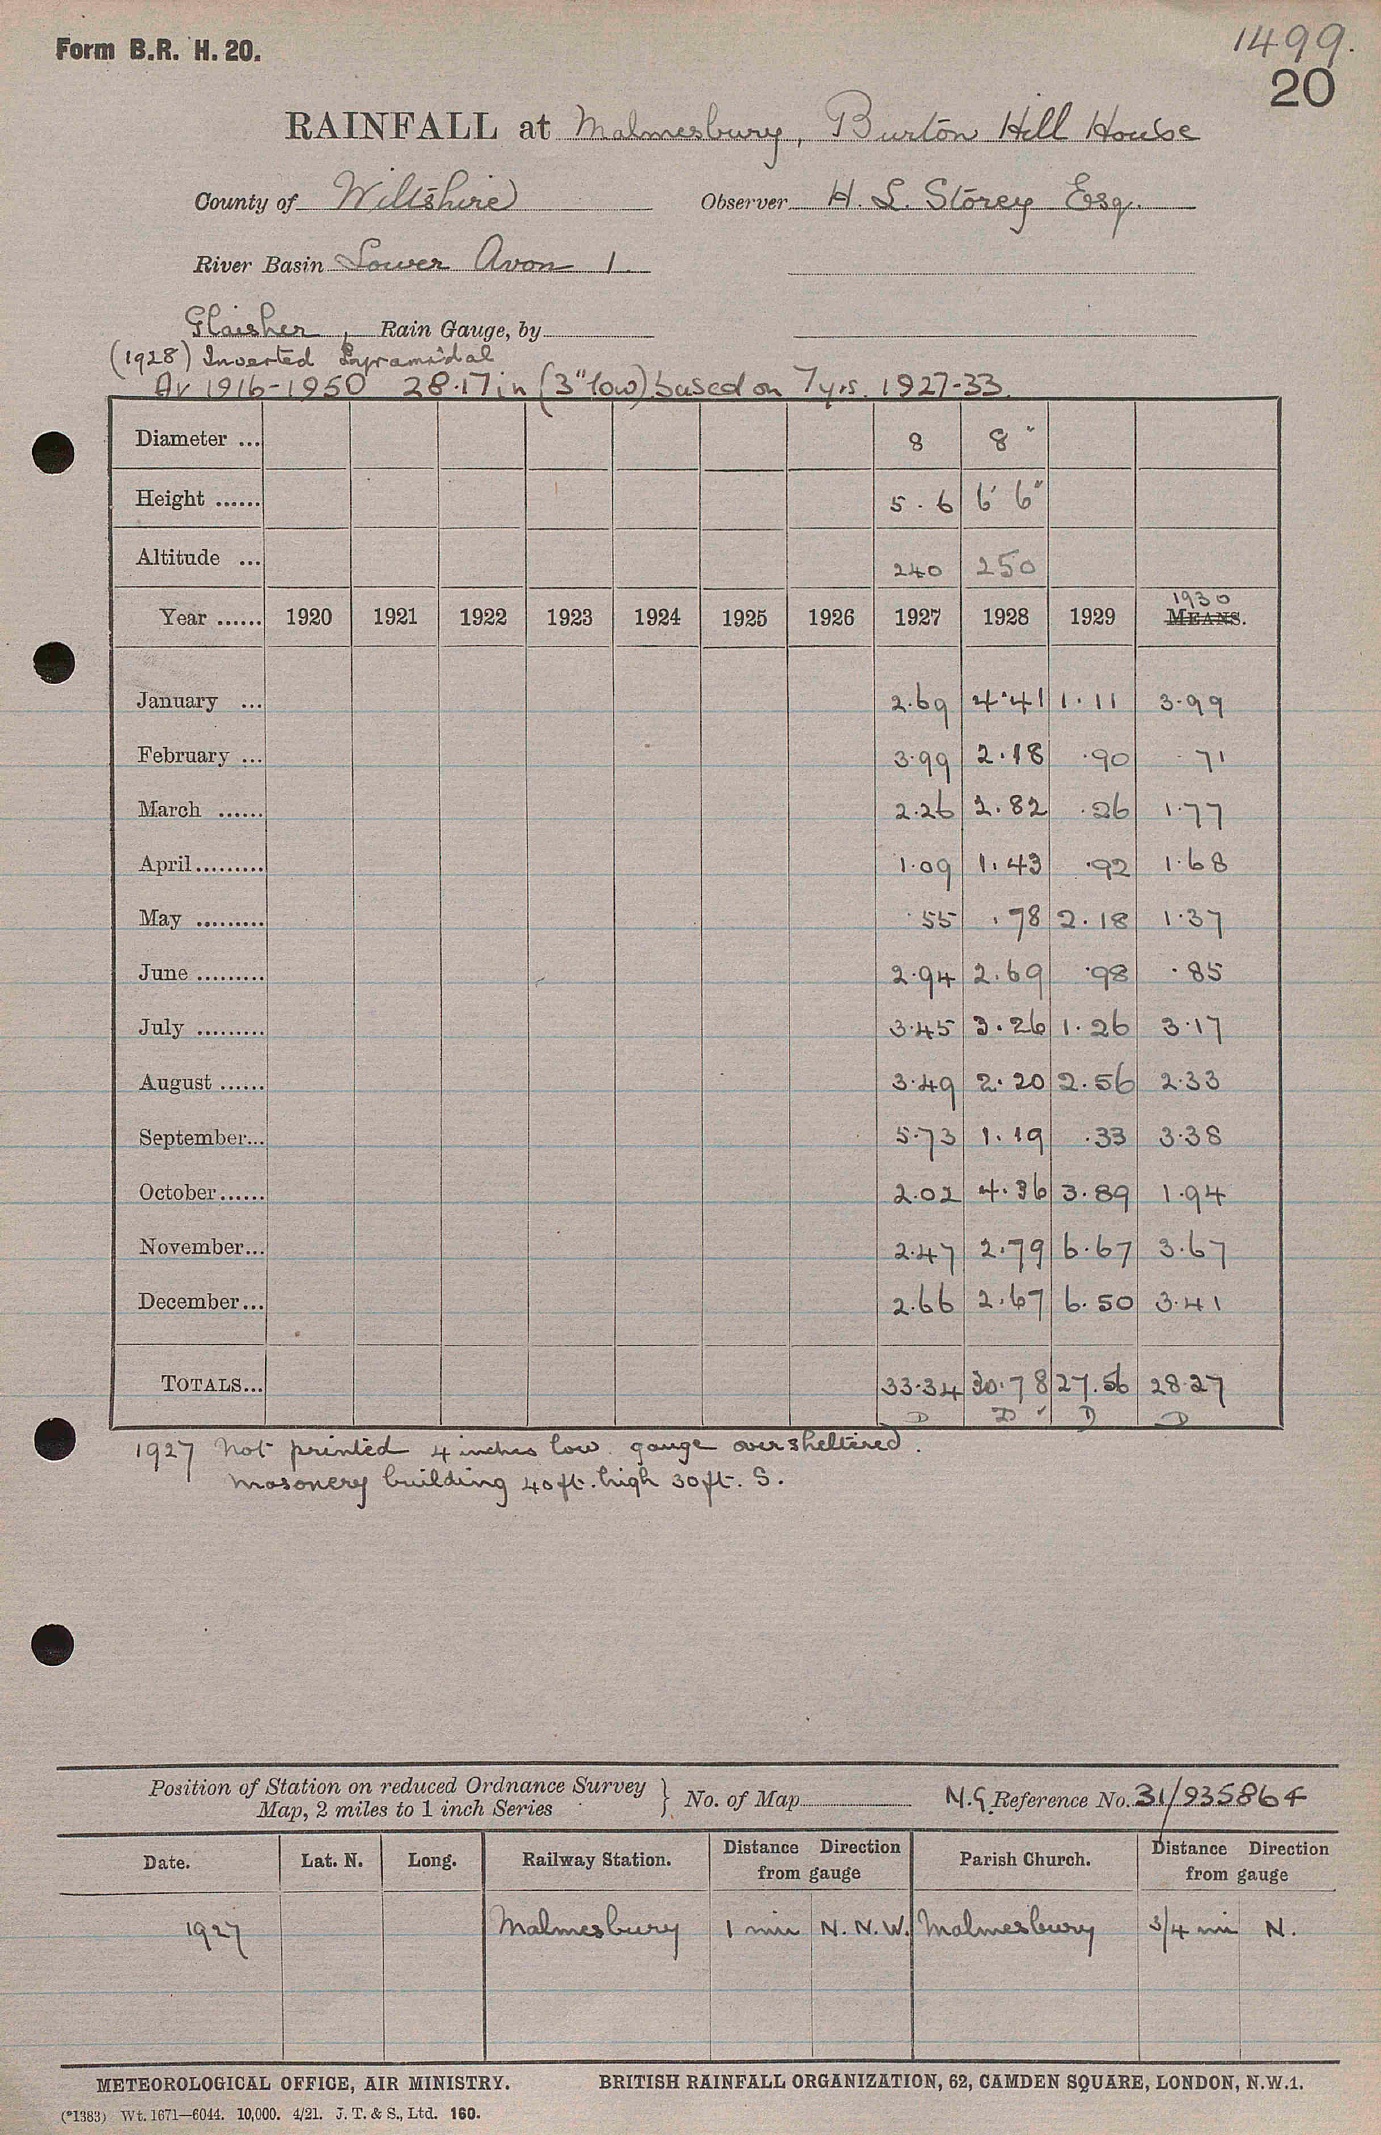 Form B.R. H. 20.
1499.
20
RAINFALL at Malmesbury, Burton Hill House
County of Wiltshire Observer H. L. Storey Esq.
River Basin Lower Avon 1.
Glaisher, Rain Gauge, by
(1928) Inverted Pyramidal
Av 1916-1950 28.17 in (3" low) based on 7 yrs. 1927-33.
Diameter ... 8 8"
Height ...... 5.6 6' 6"
Altitude ... 240 250
1930
Year ...... 1920 1921 1922 1923 1924 1925 1926 1927 1928 1929 MEANS.
January ... 2.69 4.41 1.11 3.99
February ... 3.99 2.18 .90 .71
March ...... 2.26 2.82 .26 1.77
April ......... 1.09 1.43 .92 1.68
May ......... .55 .78 2.18 1.37
June ......... 2.94 2.69 .98 .85
July ......... 3.45 3.26 1.26 3.17
August ...... 3.49 2.20 2.56 2.33
September... 5.73 1.19 .33 3.38
October ...... 2.02 4.36 3.89 1.94
November... 2.47 2.79 6.67 3.67
December... 2.66 2.67 6.50 3.41
TOTALS... 33.34 30.78 27.56 28.27
D D ✓ D D
1927 Not printed 4 inches low. gauge over sheltered.
masonery building 40ft. high 30ft. S.
Position of Station on reduced Ordnance Survey
Map, 2 miles to 1 inch Series } No. of Map N.G. Reference No. 31/935864
Date. Lat. N. Long. Railway Station. Distance Direction from gauge Parish Church. Distance Direction from gauge
1927 Malmesbury 1 mi N.N.W. Malmesbury 3/4 mi N.
METEOROLOGICAL OFFICE, AIR MINISTRY. BRITISH RAINFALL ORGANIZATION, 62, CAMDEN SQUARE, LONDON, N.W.1.
(*1383) Wt. 1671—6044. 10,000. 4/21. J. T. & S., Ltd. 160.